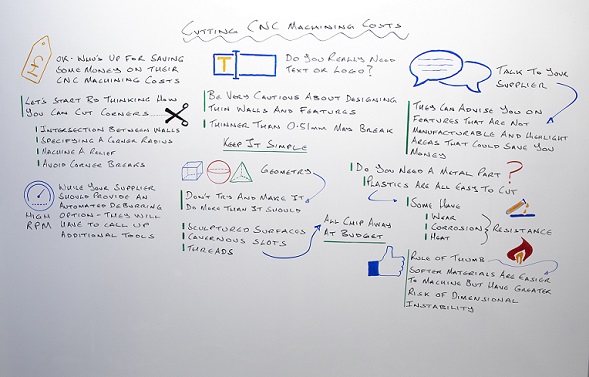 CUTTING CNC MACHINING COSTS
OK - WHO'S UP FOR SAVING
SOME MONEY ON THEIR
CNC MACHINING COSTS
LET'S START BO THINKING HOW
YOU CAN CUT CORNERS
INTERSECTION BETWEEN WALLS
SPECIFYING A CORNER RADIUS
MACHINE A RELIEF
AVOID CORNER BREAKS
WHILE YOUR SUPPLIER
SHOULD PROVIDE AN
AUTOMATED DEBURRING
OPTION - THEY WILL
HAVE TO CALL UP
ADDITIONAL TOOLS
HIGH
RPM
T
DO YOU REALLY NEED
TEXT OR LOGO?
BE VERY CAUTIOUS ABOUT DESIGNING
THIN WALLS AND FEATURES
THINNER THAN 0.51MM MAY BREAK
KEEP IT SIMPLE
GEOMETRY
DON'T TRY AND MAKE IT
DO MORE THAN IT SHOULD
SCULPTURED SURFACES
CAVERNOUS SLOTS
THREADS
ALL CHIP AWAY
AT BUDGET
TALK TO YOUR
SUPPLIER
THEY CAN ADVISE YOU ON
FEATURES THAT ARE NOT
MANUFACTURABLE AND HIGHLIGHT
AREAS THAT COULD SAVE YOU
MONEY
DO YOU NEED A METAL PART ?
PLASTICS ARE ALL EASY TO CUT
SOME HAVE
WEAR
CORROSION
HEAT
RESISTANCE
RULE OF THUMB
SOFTER MATERIALS ARE EASIER
TO MACHINE BUT HAVE GREATER
RISK OF DIMENSIONAL
INSTABILITY